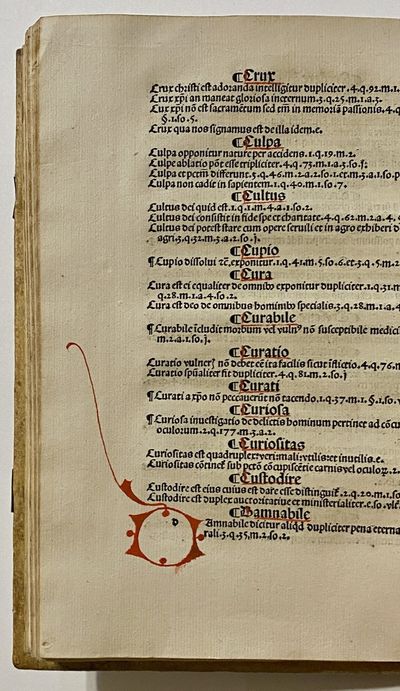 ¶Crux
Crux christi est adoranda intelligitur dupliciter.4.q.92.m.1.
Crux xp̄i an maneat gloriosa ineternum.3.q.25.m.1.a.3.
Cux xp̄i nō est sacramētum sed tm̄ in memoriā passionis.4.q
§.1.so.5.
Crux qua nos signamus est de illa idem.e.
¶Culpa
Culpa opponitur nature per accidens.1.q.19.m.2.
Culpe ablatio pōt esse tripliciter.4.q.73.m.1.a.3.so.j.
Culpa et pctm̄ differunt.3.q.46.m.2.a.2.so.1.et.m.3.a.1.so.p
Culpa non cadit in sapientem.1.q.40.m.1.so.7.
¶Cultus
Cultus dei quid est.1.q.1.m.4.a.1.so.2.
Cultus dei consistit in fide spe et charitate.4.q.62.m.2.a.4.
Cultus dei potest stare cum opere seruili et in agro exhiberi
agri.3.q.32.m.3.a.2.so.j.
¶Cupio
¶Cupio dissolui ⁊c̄.exponitur.1.q.41.m.5.so.6.et.3.q.5.m.2
¶Cura
Cura est ei equaliter de omnib⁹ exponitur dupliciter.1.q.31.m
q.28.m.1.a.4.so.2.
Cura est deo de omnibus hominib⁹ specialis.3.q.28.m.1.a.4
¶Curabile
¶Curabile īcludit morbum vel vuln⁹ nō susceptibile medici
m.2.a.1.so.j.
¶Curatio
Curatio vulner̄ nō debet eē ita facilis sicut īflictio.4.q.76.m
Curatio spūaliter fit dupliciter.4.q.81.m.2.so.j
¶Curati
¶Curati a xp̄o nō peccauerūt nō tacendo.1.q.37.m.1.§.1.so.
¶Curiosa
¶Curiosa inuestigatio de delictis hominum pertinet ad cōcu
oculorum.2.q.177.m.3.a.2.
¶Curiositas
Curiositas est quadruplex:veri:mali:vtilis:et inutilis.e.
Curiositas cōtinet̄ sub pctō cōcupiscētie carnis vel oculoꝝ.2.
¶Custodire
Custodire est eius cuius est dare esse distinguit̄.2.q.20.m.1.so
Custodire est duplex auctoritatiue et ministerialiter.e.so.
¶Damnabile
d
Amnabile dicitur aliqd̄ dupliciter pena eterna
rali.3.q.35.m.2.so.2.